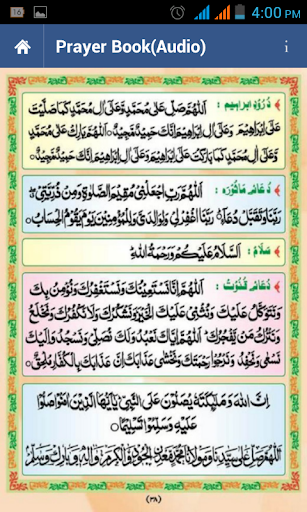 4:00 PM
Prayer Book(Audio)
دُرُودِ ابراہیم : اَللّٰهُمَّ صَلِّ عَلٰى مُحَمَّدٍ وَّعَلٰٓى اٰلِ مُحَمَّدٍ كَمَا صَلَّيْتَ
عَلٰٓى اِبْرَاهِيْمَ وَعَلٰٓى اٰلِ اِبْرَاهِيْمَ اِنَّكَ حَمِيْدٌ مَّجِيْدٌ اَللّٰهُمَّ بَارِكْ عَلٰى مُحَمَّدٍ
وَّعَلٰٓى اٰلِ مُحَمَّدٍ كَمَا بَارَكْتَ عَلٰٓى اِبْرَاهِيْمَ وَعَلٰٓى اٰلِ اِبْرَاهِيْمَ اِنَّكَ حَمِيْدٌ مَّجِيْدٌ
دُعائے مَاثُورَہ : اَللّٰهُمَّ رَبِّ اجْعَلْنِيْ مُقِيْمَ الصَّلٰوةِ وَمِنْ ذُرِّيَّتِيْ
رَبَّنَا وَتَقَبَّلْ دُعَآءِ رَبَّنَا اغْفِرْلِيْ وَلِوَالِدَيَّ وَلِلْمُؤْمِنِيْنَ يَوْمَ يَقُوْمُ الْحِسَابُ
سَلَام : اَلسَّلَامُ عَلَيْكُمْ وَرَحْمَةُ اللّٰهِ
دُعائے قُنُوت : اَللّٰهُمَّ اِنَّا نَسْتَعِيْنُكَ وَنَسْتَغْفِرُكَ وَنُؤْمِنُ بِكَ
وَنَتَوَكَّلُ عَلَيْكَ وَنُثْنِيْ عَلَيْكَ الْخَيْرَ وَنَشْكُرُكَ وَلَا نَكْفُرُكَ وَنَخْلَعُ
وَنَتْرُكُ مَنْ يَّفْجُرُكَ اَللّٰهُمَّ اِيَّاكَ نَعْبُدُ وَلَكَ نُصَلِّيْ وَنَسْجُدُ وَاِلَيْكَ
نَسْعٰى وَنَحْفِدُ وَنَرْجُوْا رَحْمَتَكَ وَنَخْشٰى عَذَابَكَ اِنَّ عَذَابَكَ بِالْكُفَّارِ مُلْحِقٌ
اِنَّ اللّٰهَ وَمَلٰٓئِكَتَهٗ يُصَلُّوْنَ عَلَى النَّبِيِّ يٰٓاَيُّهَا الَّذِيْنَ اٰمَنُوْا صَلُّوْا
عَلَيْهِ وَسَلِّمُوْا تَسْلِيْمًا
اَللّٰهُمَّ صَلِّ عَلٰى سَيِّدِنَا وَمَوْلَانَا مُحَمَّدٍ مَّعْدِنِ الْجُوْدِ وَالْكَرَمِ وَاٰلِهٖ وَبَارِكْ وَسَلِّمْ
(۳۸)